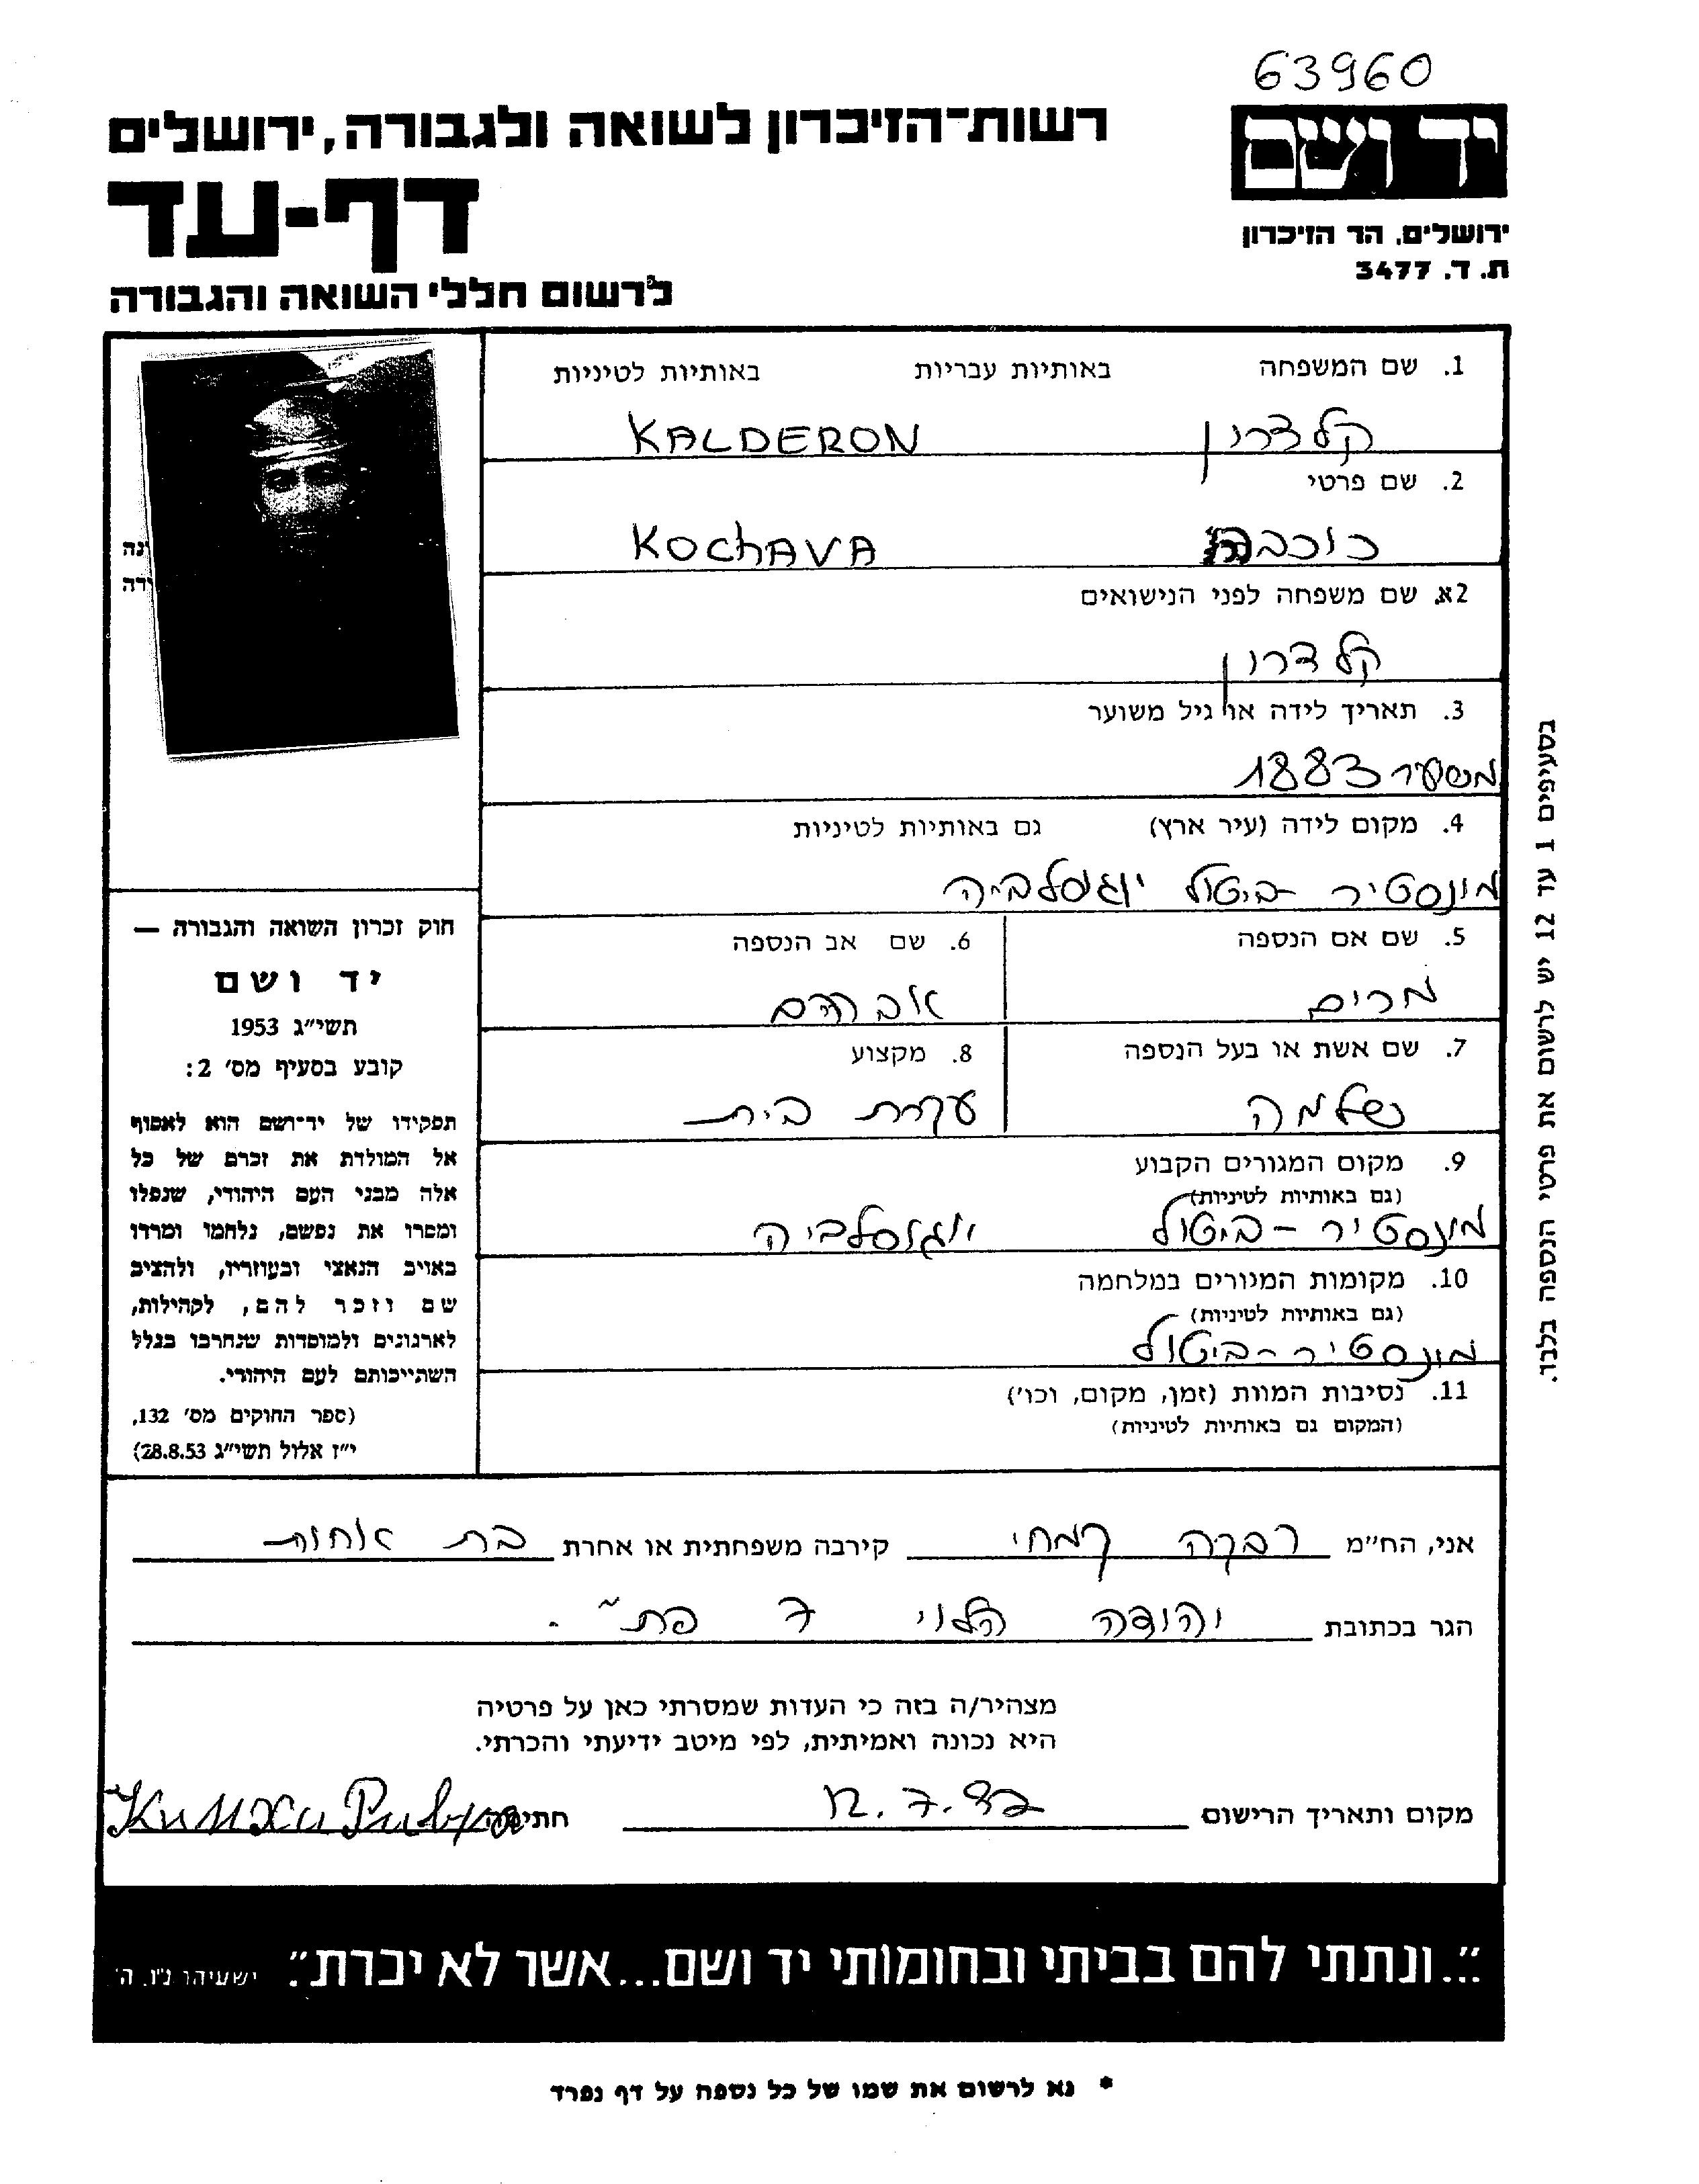 63960
יד ושם
ירושלים, הר הזיכרון
ת. ד. 3477
רשות־הזיכרון לשואה ולגבורה, ירושלים
דף-עד
לרשום חללי השואה והגבורה
1. שם המשפחה באותיות עבריות באותיות לטיניות
קלדרון KALDERON
2. שם פרטי
כוכבה KOCHAVA
2א. שם משפחה לפני הנישואים
קלדרון
3. תאריך לידה או גיל משוער
משוער 1883
4. מקום לידה (עיר ארץ) גם באותיות לטיניות
מונסטיר - ביטול יוגוסלביה
5. שם אם הנספה 6. שם אב הנספה
מרים אברהם
7. שם אשת או בעל הנספה 8. מקצוע
עקרת בית
9. מקום המגורים הקבוע
(גם באותיות לטיניות)
מונסטיר - ביטול יוגוסלביה
10. מקומות המגורים במלחמה
(גם באותיות לטיניות)
מונסטיר - ביטול
11. נסיבות המוות (זמן, מקום, וכו')
(המקום גם באותיות לטיניות)
נה
דה
חוק זכרון השואה והגבורה —
יד ושם
תשי״ג 1953
קובע בסעיף מס' 2:
תפקידו של יד־ושם הוא לאסוף
אל המולדת את זכרם של כל
אלה מבני העם היהודי, שנפלו
ומסרו את נפשם, נלחמו ומרדו
באויב הנאצי ובעוזריו, ולהציב
שם וזכר להם, לקהילות,
לארגונים ולמוסדות שנחרבו בגלל
השתייכותם לעם היהודי.
(ספר החוקים מס' 132,
י״ז אלול תשי״ג 28.8.53)
בסעיפים 1 עד 12 יש לרשום את פרטי הנספה בלבד.
אני, הח״מ רבקה קמחי קירבה משפחתית או אחרת בת אחות
הגר בכתובת יהודה הלוי 7 פת״
מצהיר/ה בזה כי העדות שמסרתי כאן על פרטיה
היא נכונה ואמיתית, לפי מיטב ידיעתי והכרתי.
מקום ותאריך הרישום חתימה Кимхи Ривка
״...ונתתי להם בביתי ובחומותי יד ושם...אשר לא יכרת.״ ישעיהו נ״ו, ה'
* נא לרשום את שמו של כל נספה על דף נפרד